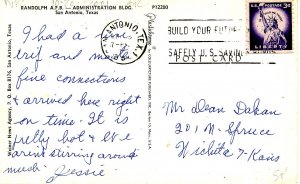 RANDOLPH A.F.B. — ADMINISTRATION BLDG.
San Antonio, Texas
P12280
SAN ANTONIO, TEX.
BUILD YOUR FUTURE
SAFELY U.S. SAVINGS
U.S. POSTAGE 3¢
LIBERTY
POST CARD
Weiner News Agency, P. O. Box
San Antonio, Texas
I had a
trif and made
fine connections
& arrived here right
on time. It is
pretty hot & We
arint stirring around
much. Jessie
Mr Dean
201 N. Spruce
Wichita 7-Kans